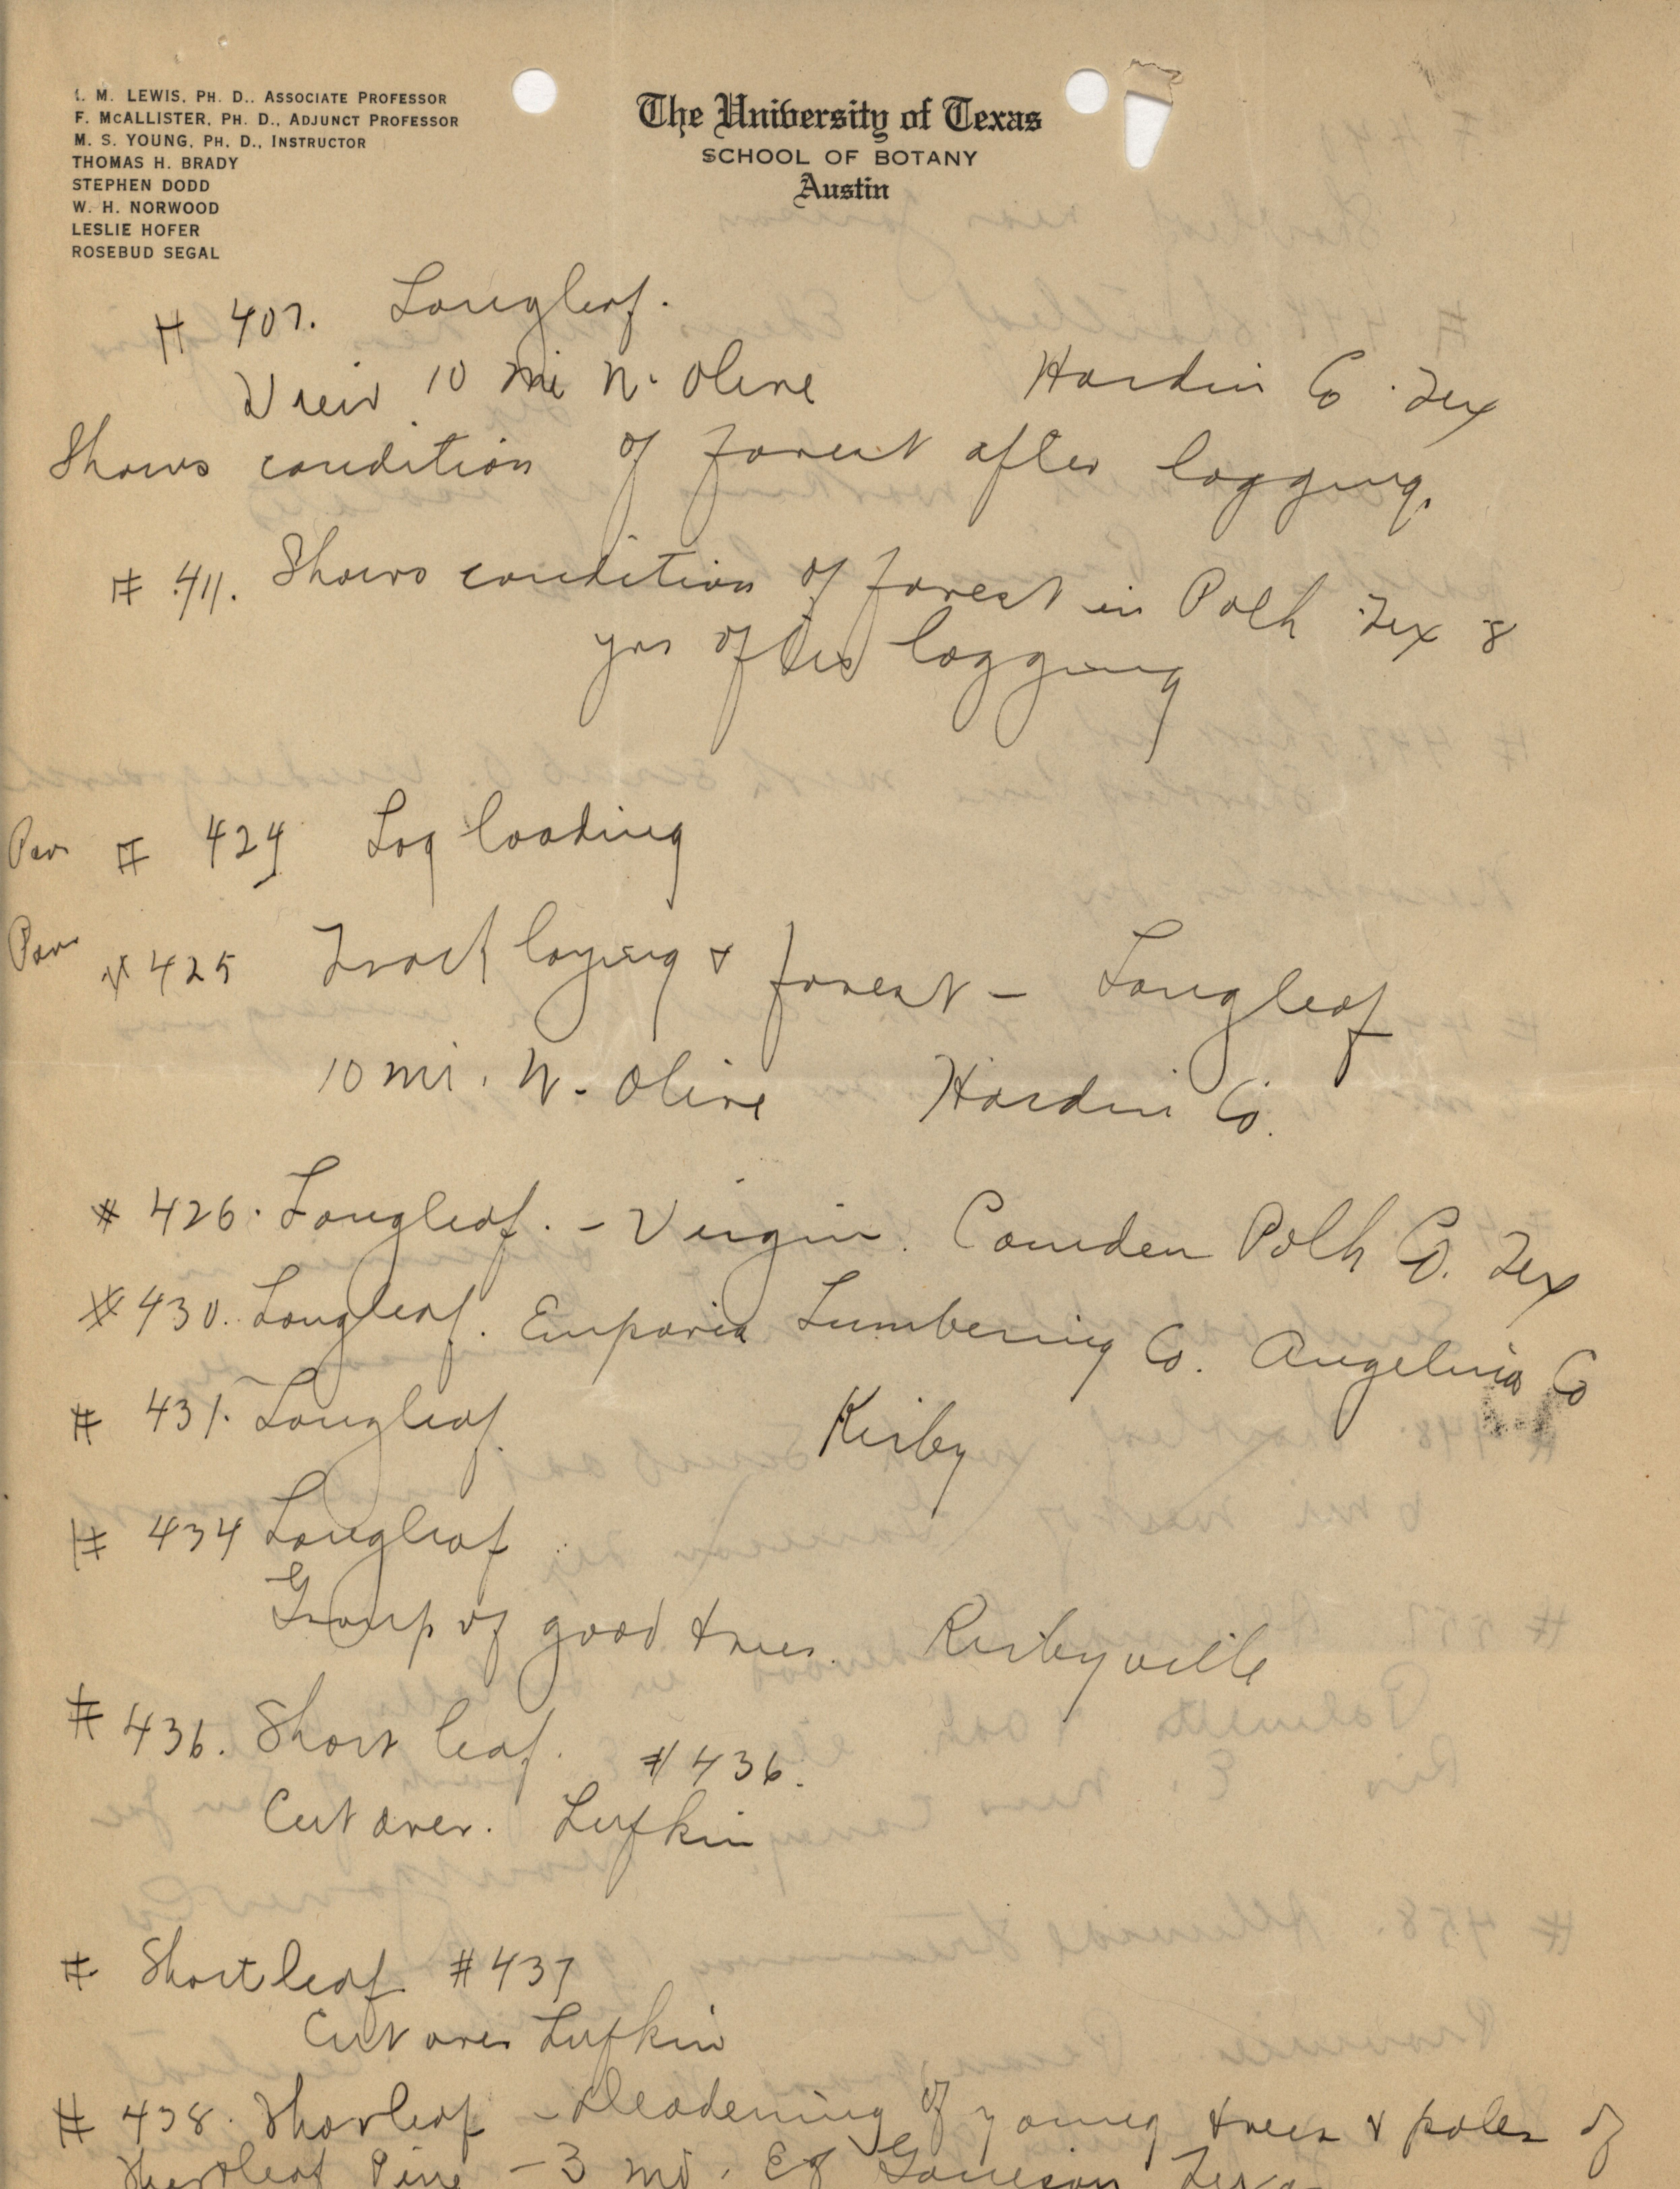 I. M. LEWIS, PH. D., ASSOCIATE PROFESSOR
F. MCALLISTER, PH. D., ADJUNCT PROFESSOR
M. S. YOUNG, PH. D., INSTRUCTOR
THOMAS H. BRADY
STEPHEN DODD
W. H. NORWOOD
LESLIE HOFER
ROSEBUD SEGAL
The University of Texas
SCHOOL OF BOTANY
Austin
# 407. Longleaf.
View 10 mi N. Olive Hardin Co. Tex
Shows condition of forest after logging.
# 411. Shows condition of forest in Polk Tex 8
yrs after logging
Pan # 424 Log loading
Pan # 425 Track laying & forest - Longleaf
10 mi. N. Olive Hardin Co.
# 426. Longleaf. - Virgin. Camden Polk Co. Tex
# 430. Longleaf. Emporia Lumbering Co. Angelina Co
# 431. Longleaf. Kirby
# 434 Longleaf
Group of good trees. Kirbyville
# 436. Short leaf. # 436.
Cut over. Lufkin
# Shortleaf #437
Cut over Lufkin
# 438. Shorleaf - Deadening of young trees & poles of
Shortleaf Pine - 3 mi. E of Garrison Texas